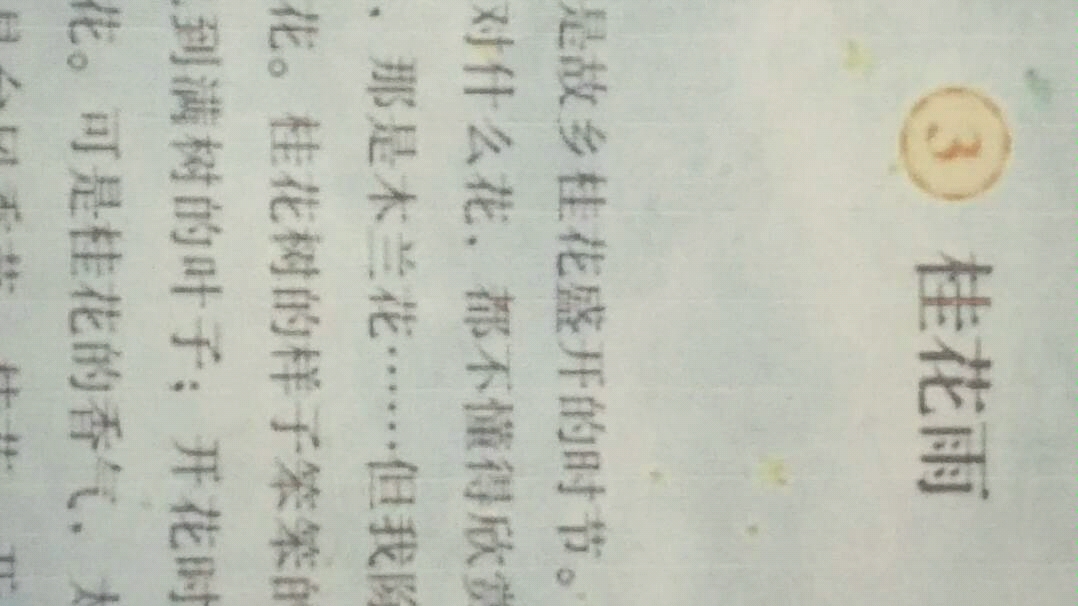 3 桂花雨
是故乡桂花盛开的时节。
对什么花，都不懂得欣
，那是木兰花……但我
花。桂花树的样子笨笨的
到满树的叶子；开花时
花。可是桂花的香气，